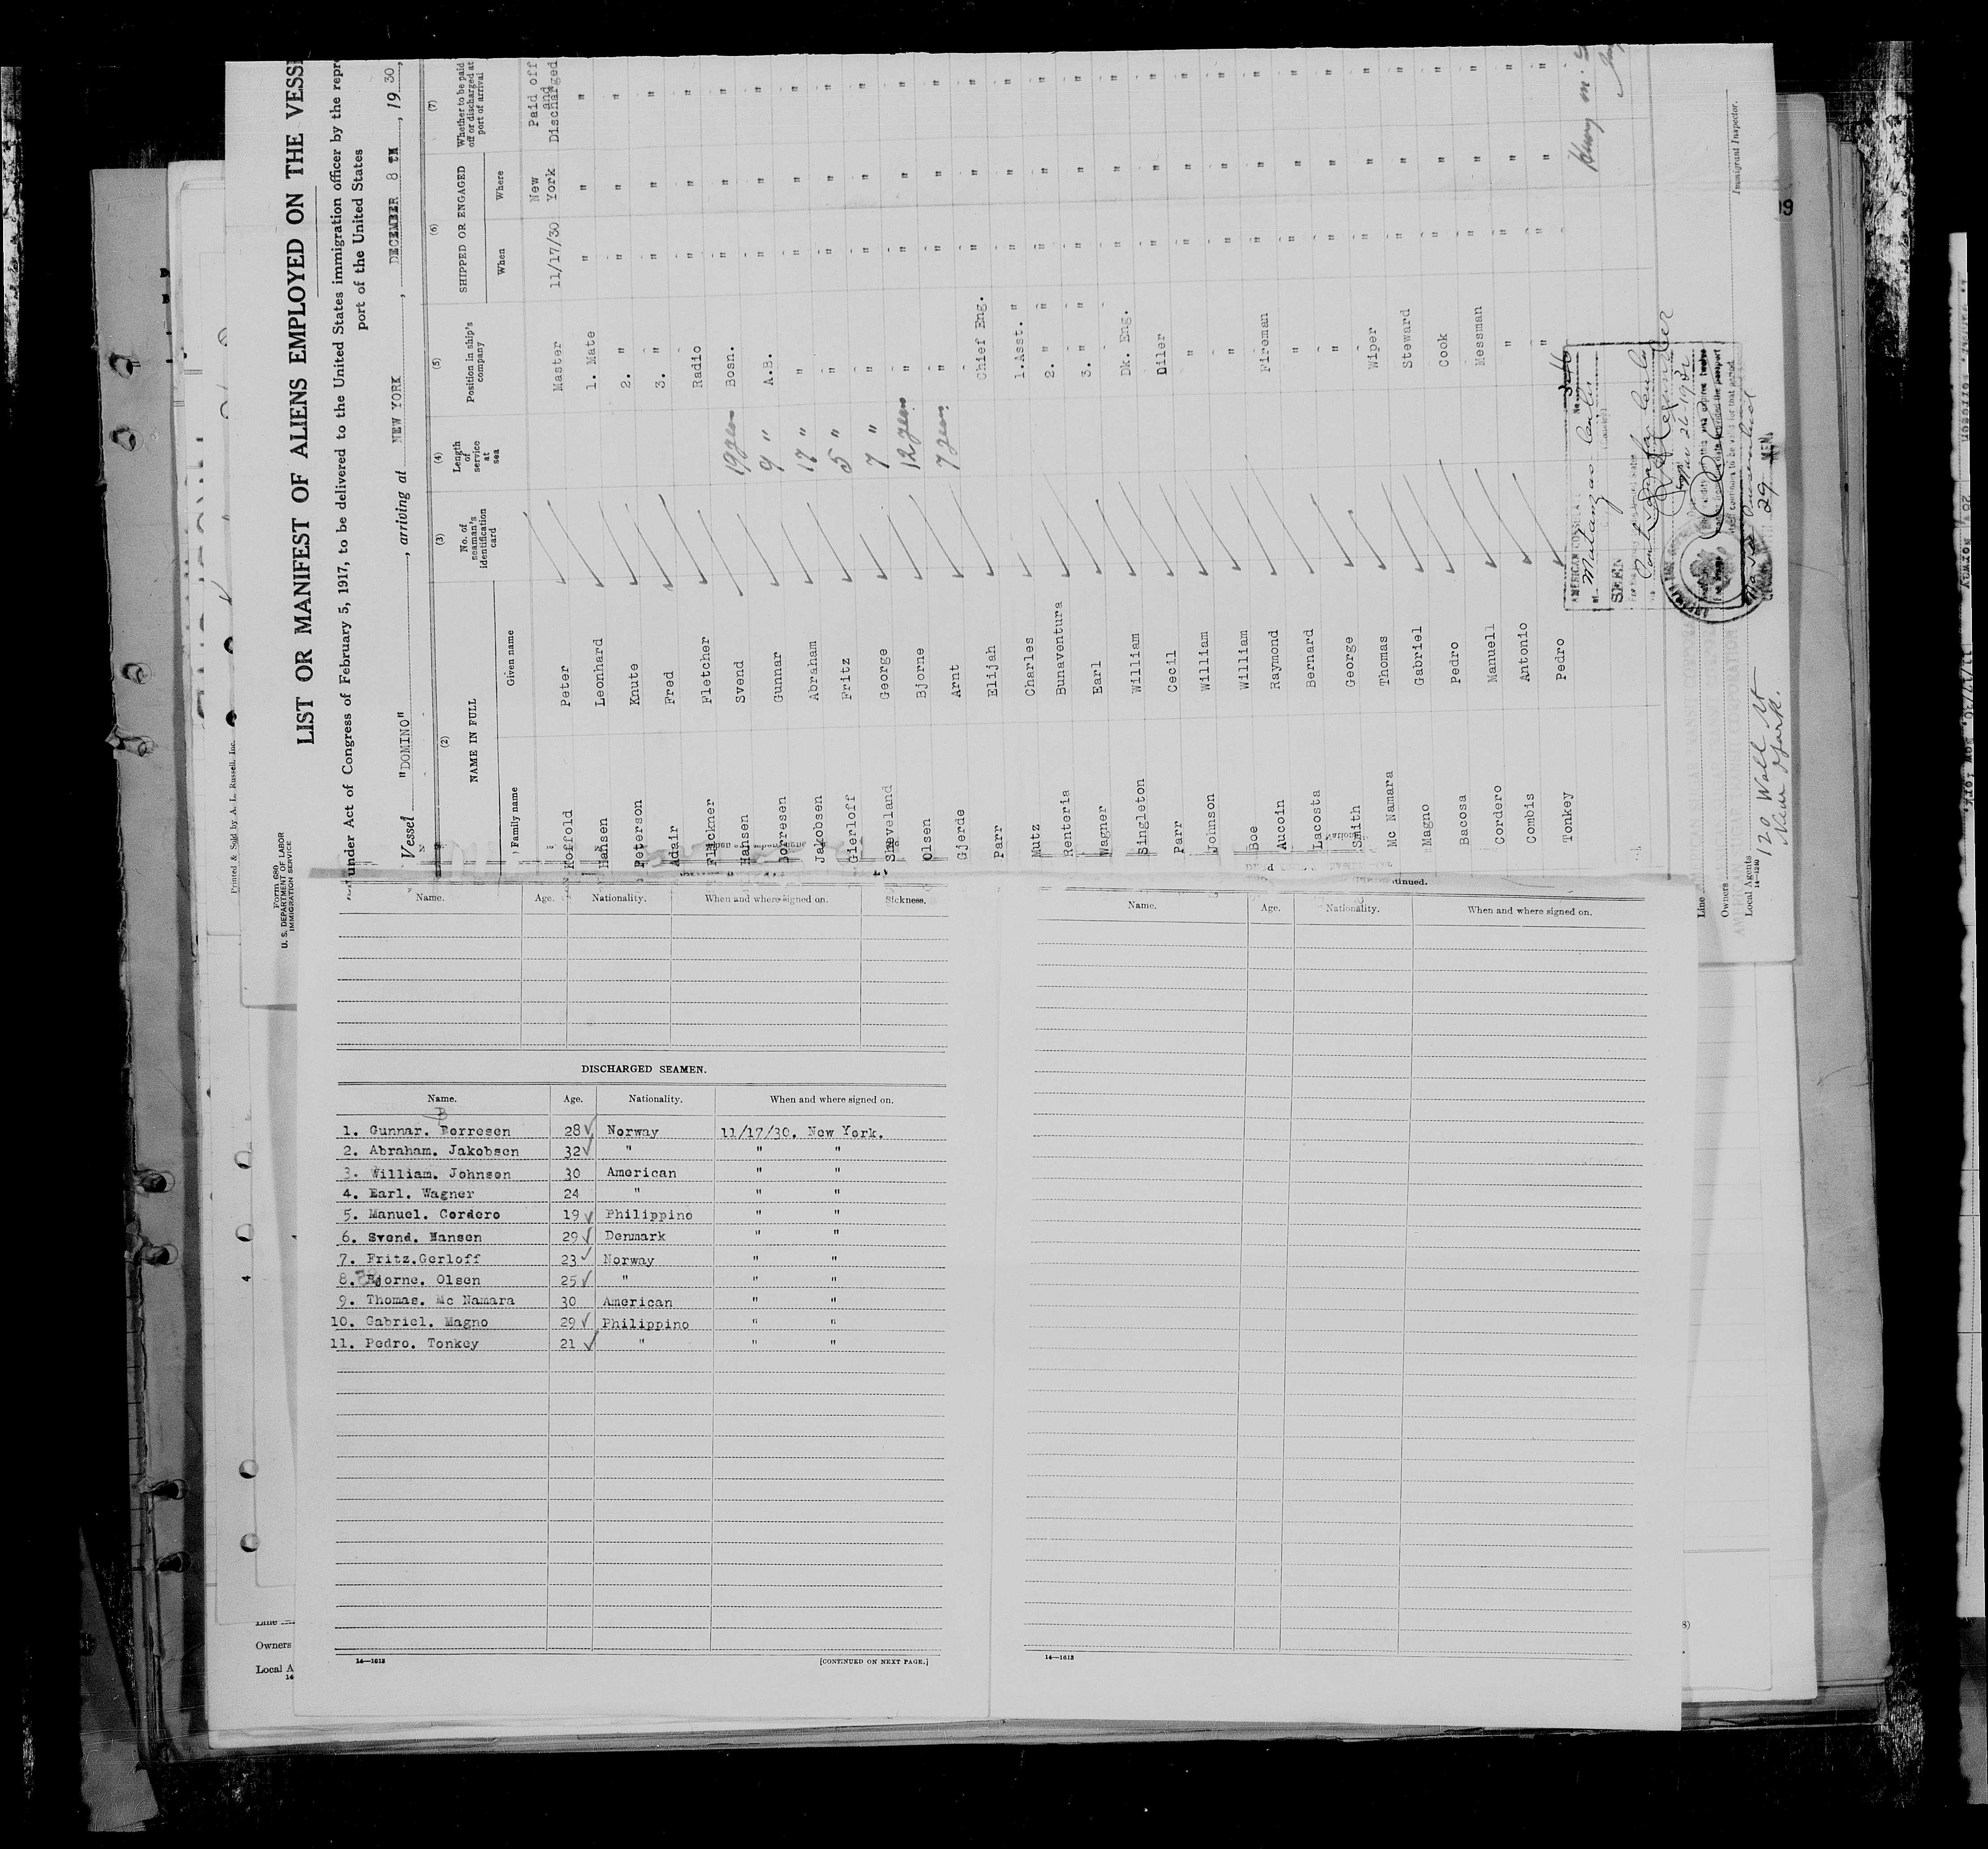 Form 680
U. S. DEPARTMENT OF LABOR
IMMIGRATION SERVICE
Printed & Sold by A. L. Russell, Inc.
LIST OR MANIFEST OF ALIENS EMPLOYED ON THE VESS
under Act of Congress of February 5, 1917, to be delivered to the United States immigration officer by the repr
port of the United States
Vessel "DOMINO" , arriving at NEW YORK , DECEMBER 8 TH , 19 30,
(2) (3) (4) (5) (6) (7)
NAME IN FULL No. of seaman's identification card Length of service at sea Position in ship's company SHIPPED OR ENGAGED Whether to be paid off or discharged at port of arrival
Family name Given name When Where
Koffold Peter Master 11/17/30 New York Paid off and Discharged
Hansen Leonhard 1. Mate " " "
Peterson Knute 2. " " " "
Adair Fred 3. " " " "
Flickner Fletcher Radio " " "
Hansen Svend 19 years Bosn. " " "
Borresen Gunnar 9 " A.B. " " "
Jakobsen Abraham 17 " " " " "
Gierloff Fritz 5 " " " " "
Sheveland George 7 " " " " "
Olsen Bjorne 12 years " " " "
Gjerde Arnt 7 years " " " "
Parr Elijah Chief Eng. " " "
Mutz Charles 1.Asst. " " " "
Renteria Bunaventura 2. " " " " "
Wagner Earl 3. " " " " "
Singleton William Dk. Eng. " " "
Parr Cecil Oiler " " "
Johnson William " " " "
Boe William " " " "
Aucoin Raymond Fireman " " "
Lacosta Bernard " " " "
Smith George " " " "
Mc Namara Thomas Wiper " " "
Magno Gabriel Steward " " "
Bacosa Pedro Cook " " "
Cordero Manuell Messman " " "
Combis Antonio " " " "
Tonkey Pedro " " " "
AMERICAN CONSUL
Matanzas Cuba
SEEN
Immigrant Inspector.
Line
Owners
Local Agents
14—1240
120 Wall St
New York.
Name. Age. Nationality. When and where signed on. Sickness.
DISCHARGED SEAMEN.
Name. Age. Nationality. When and where signed on.
1. Gunnar. Borresen 28 Norway 11/17/30. New York.
2. Abraham. Jakobsen 32 " " "
3. William. Johnson 30 American " "
4. Earl. Wagner 24 " " "
5. Manuel. Cordero 19 Philippino " "
6. Svend. Hansen 29 Denmark " "
7. Fritz.Gerloff 23 Norway " "
8. Bjorne. Olsen 25 " " "
9. Thomas. Mc Namara 30 American " "
10. Gabriel. Magno 29 Philippino " "
11. Pedro. Tonkey 21 " " "
14—1613 [CONTINUED ON NEXT PAGE.]
Name. Age. Nationality. When and where signed on.
14—1613
Line
Owners
Local A